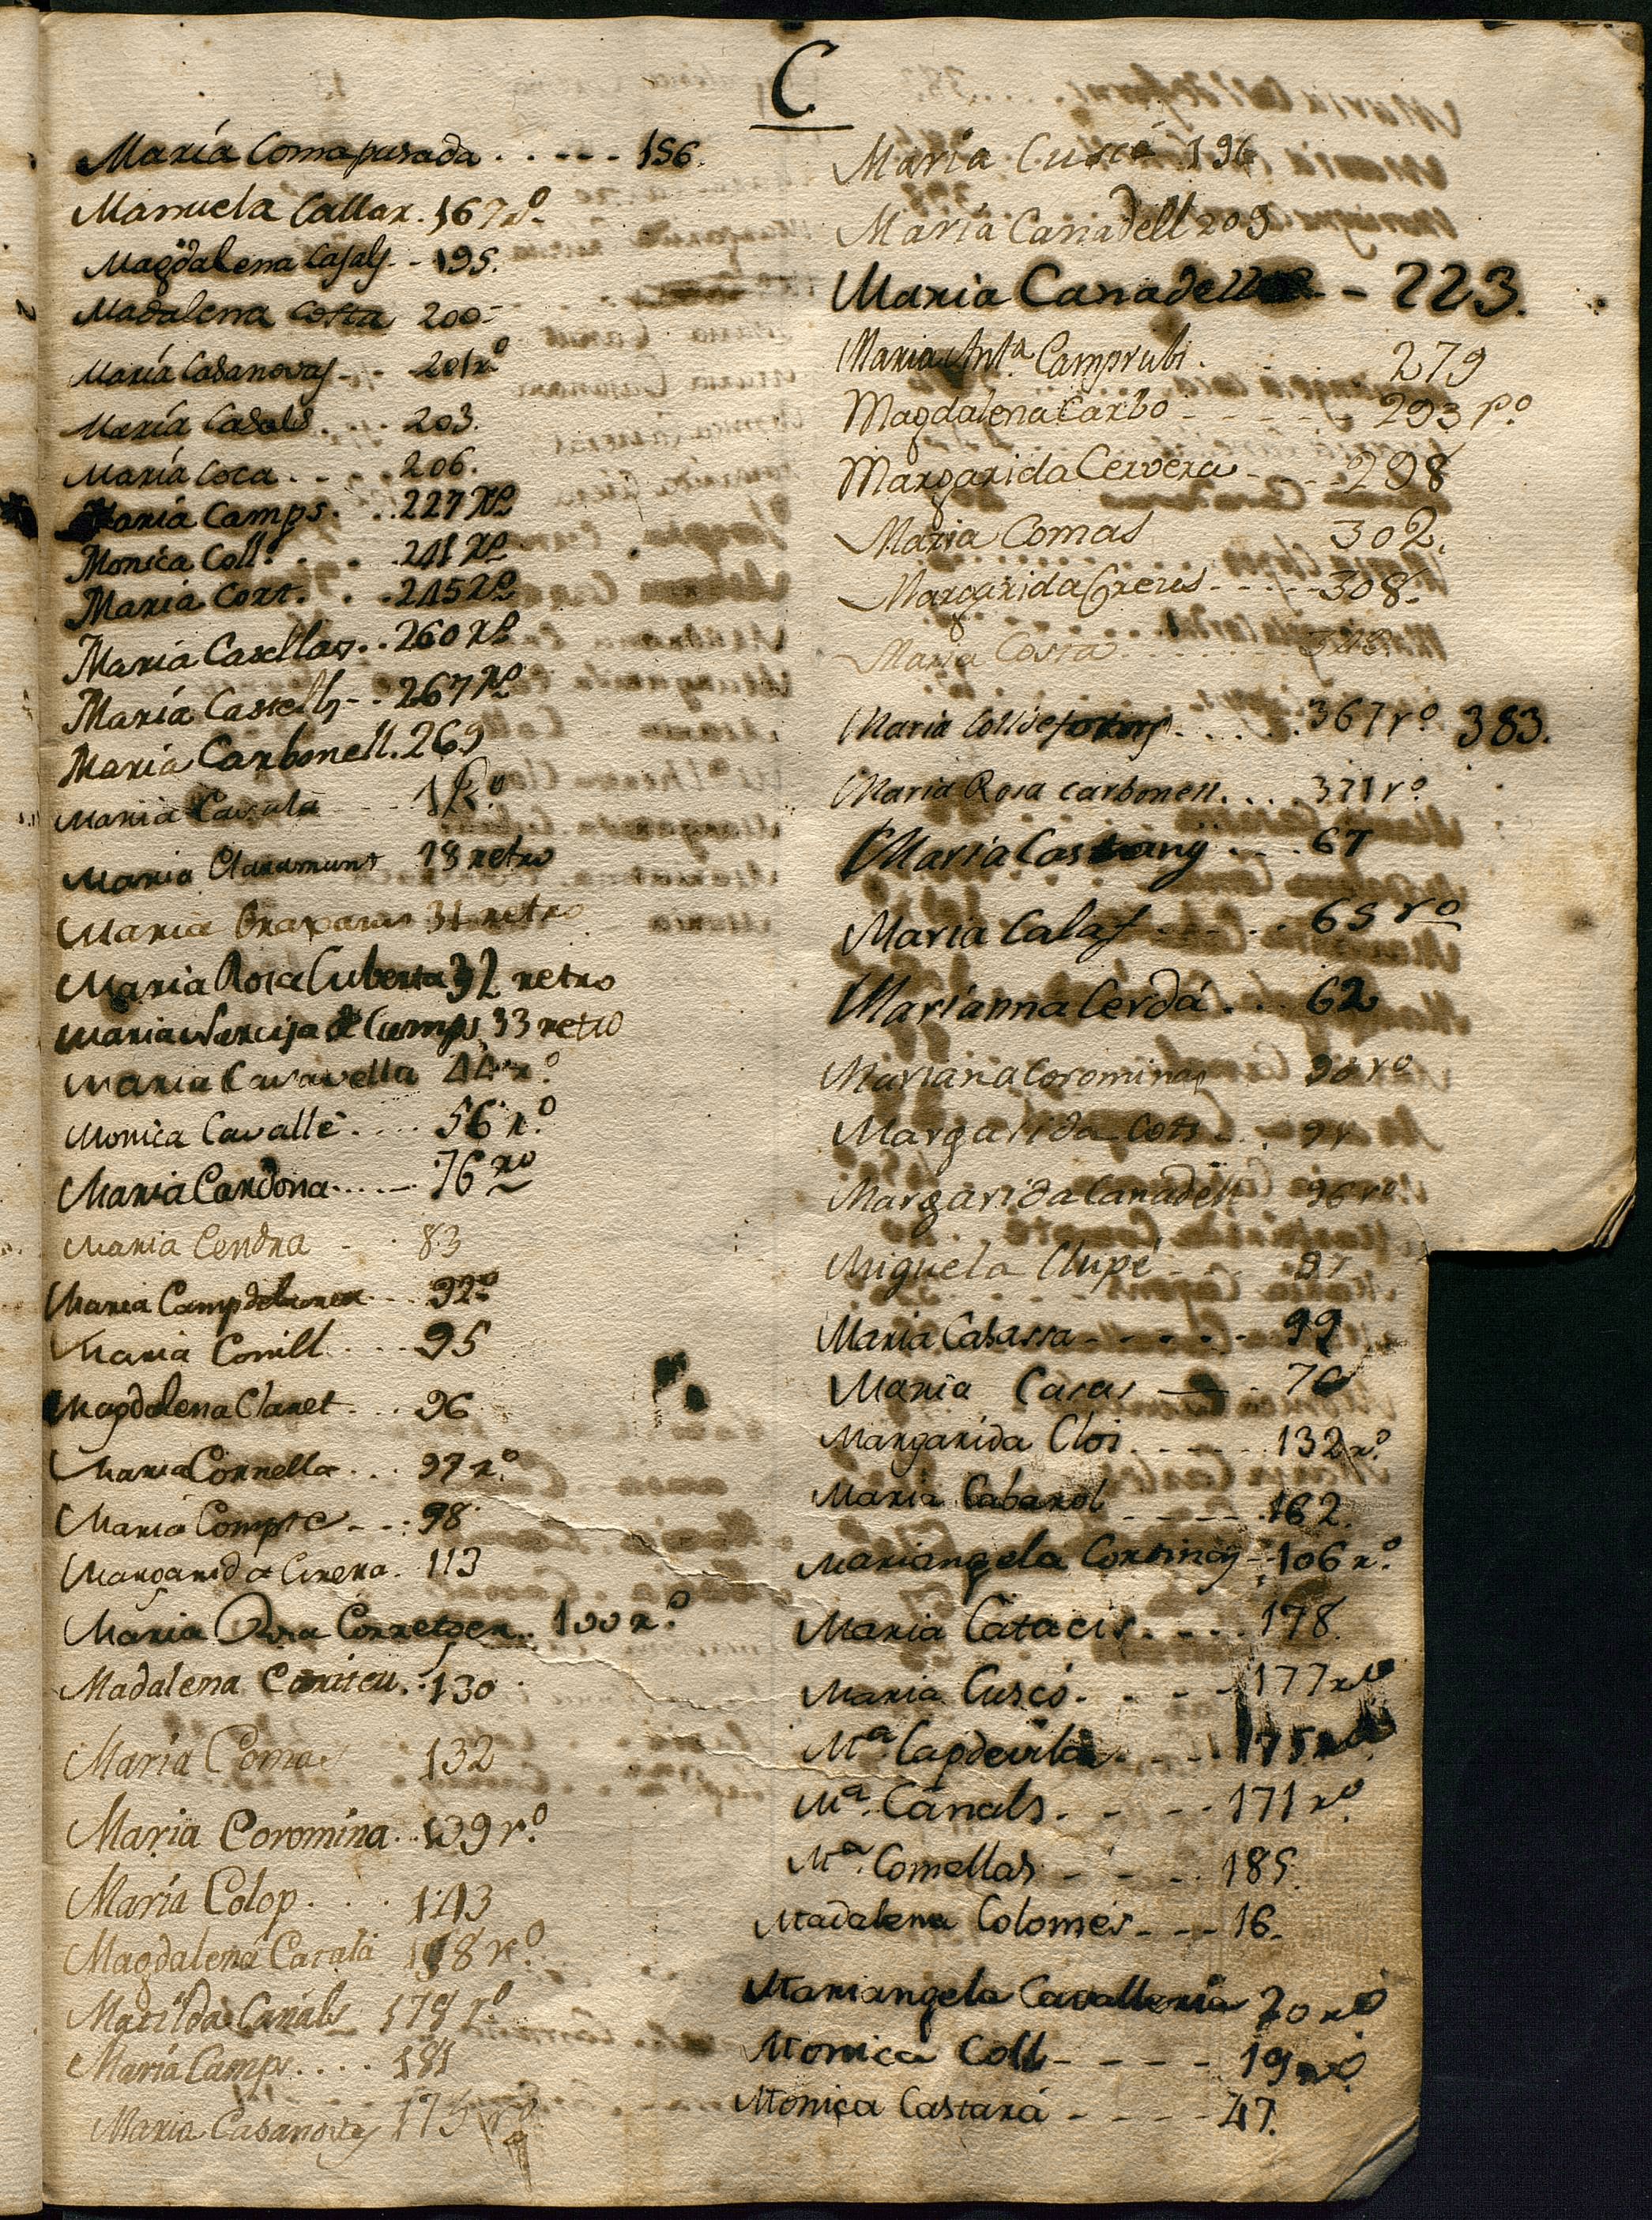 C
María Comaposada . . - - - 156.
Manuela Collar. 167 rº
Magdalena Casals - - 195.
Madalena Costa 200-
María Casanovas - - - 201 rº
María Casals. . . 203.
María Coca . . - 206.
María Camps. . . 227 Rº
Monica Coll. . . . 241 Rº
Maria Cort. . . . 245 Rº
María Casellas . . 260 Rº
María Castells - . 267 Rº
María Carbonell. 269
Maria Casala - - - 1 Rº
Maria Claramunt 18 retro
Maria 31 retro
Maria Rosa Cuberta 32 retro
Maria Narcisa de Camps 33 retro
Maria Cavavella 44 rº
Monica Cavallé. . . . 56 rº
Maria Cardona. . . - - 76 rº
Maria Cendra - . . 83
Maria Campdelacrea - - 92º
Maria Conill . . . . 95
Magdalena Claret . . . 96
Maria Cornella . . . 97 rº
Maria Compte - - . 98
Margarida Cirera. 113
Maria Rosa Corretger. 100 rº
Madalena . 130
Maria Comas 132
Maria Coromina . . 139 rº
María Colop. . . . 143
Magdalena Casala 158 rº
Matilda Canals 178 rº
María Camps . . . . 181
Maria Casanovas 175 rº
María Cuscó 196
María Canadell 209
Maria Canadell - - 223.
Maria Antª. Camprubi . . . . 279
Magdalena Carbo - - - - - 293 rº
Margarida Cervera - - - - 298
Maria Comas 302.
Margarida Creus - - - - - 308.
Maria Costa . . . . . .
Maria Colldeforns . . . . . 367 rº 383.
Maria Rosa Carbonell . . . . 371 rº
Maria Castany . - . 67
Maria Calaf - - - - . . 65 rº
Marianna Cerdá . . . 62
Mariana Corominas 90 rº
Margarida Cots - . .
Margarida Canadell 96 rº
Miguela Clupé - - - 97
Maria Cabassa - - - - - - 99
Maria Casas - - - 70
Margarida Cloi. - - - - - 132 rº
Maria Cabarol - - - - - 162.
Mariangela Cortinas - - 106 rº
Maria Catacis. - - . . 178.
Maria Cuscó. - - - - 177 rº
Mª. Capdevila. - - - 175 rº
Mª. Canals. - - - - 171 rº
Mª. Comellas - - - . 185.
Madalena Colomés - - - 16.
Mariangela Cavalleria 20 rº
Monica Coll - - - - - 19 rº
Monica Castará - - - - 47.